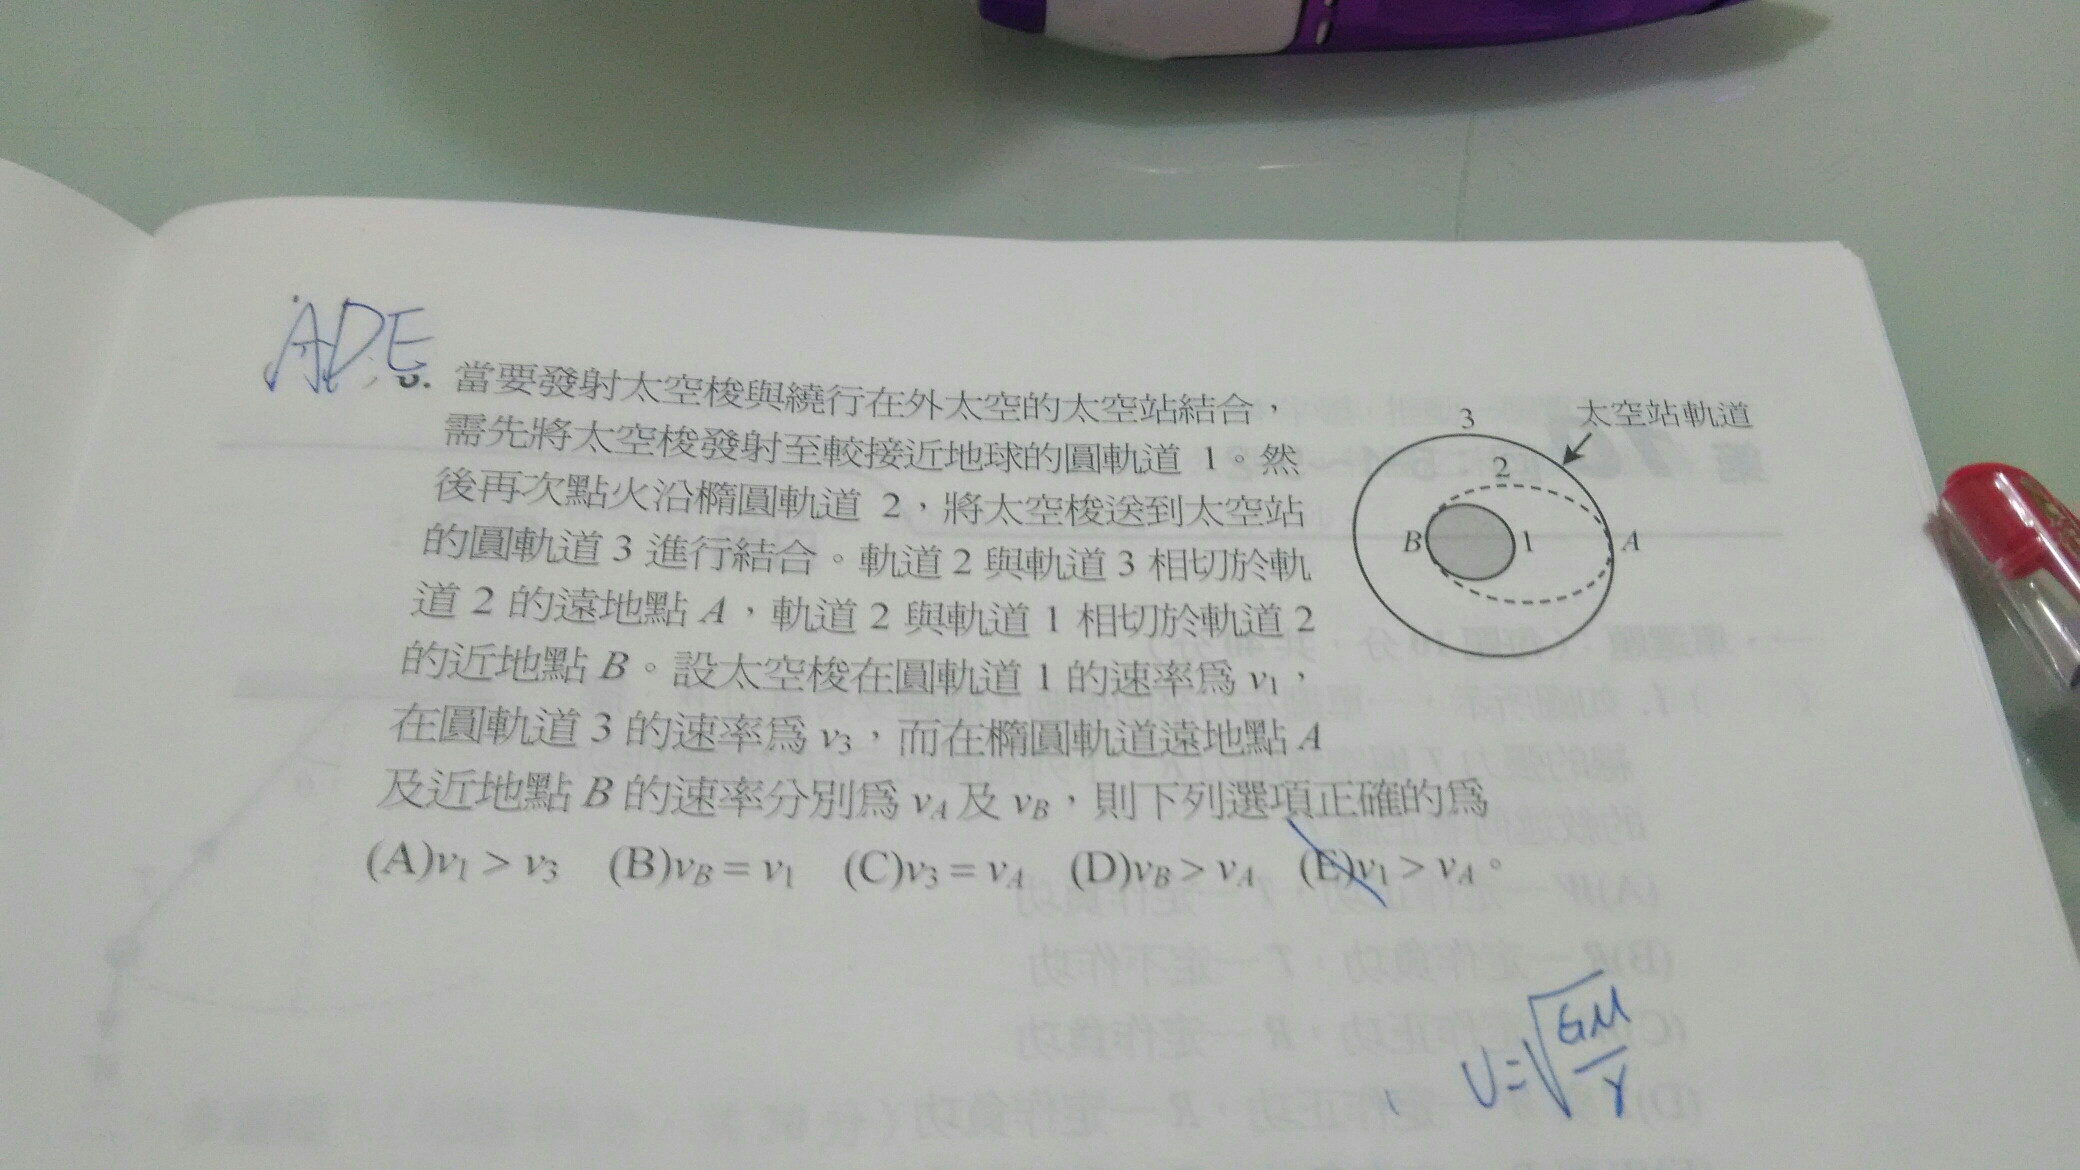 ADE
當要發射太空梭與繞行在外太空的太空站結合，
需先將太空梭發射至較接近地球的圓軌道 1。然
後再次點火沿橢圓軌道 2，將太空梭送到太空站
的圓軌道 3 進行結合。軌道 2 與軌道 3 相切於軌
道 2 的遠地點 A，軌道 2 與軌道 1 相切於軌道 2
的近地點 B。設太空梭在圓軌道 1 的速率爲 v₁，
在圓軌道 3 的速率爲 v₃，而在橢圓軌道遠地點 A
及近地點 B 的速率分別爲 vA 及 vB，則下列選項正確的爲
(A)v₁ > v₃ (B)vB = v₁ (C)v₃ = vA (D)vB > vA (E)v₁ > vA。
3
太空站軌道
2
B
1
A
v=√(GM/r)